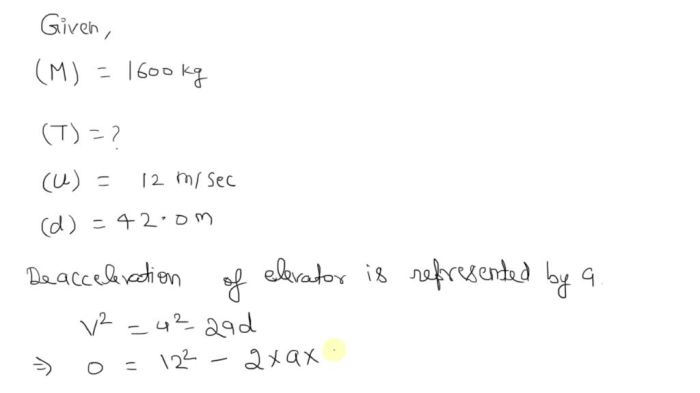 Given,
(M) = 1600 kg
(T) = ?
(u) = 12 m/sec
(d) = 42.0 m
Deacceleration of elevator is represented by a.
V² = u² - 2ad
⇒ 0 = 12² - 2×a×